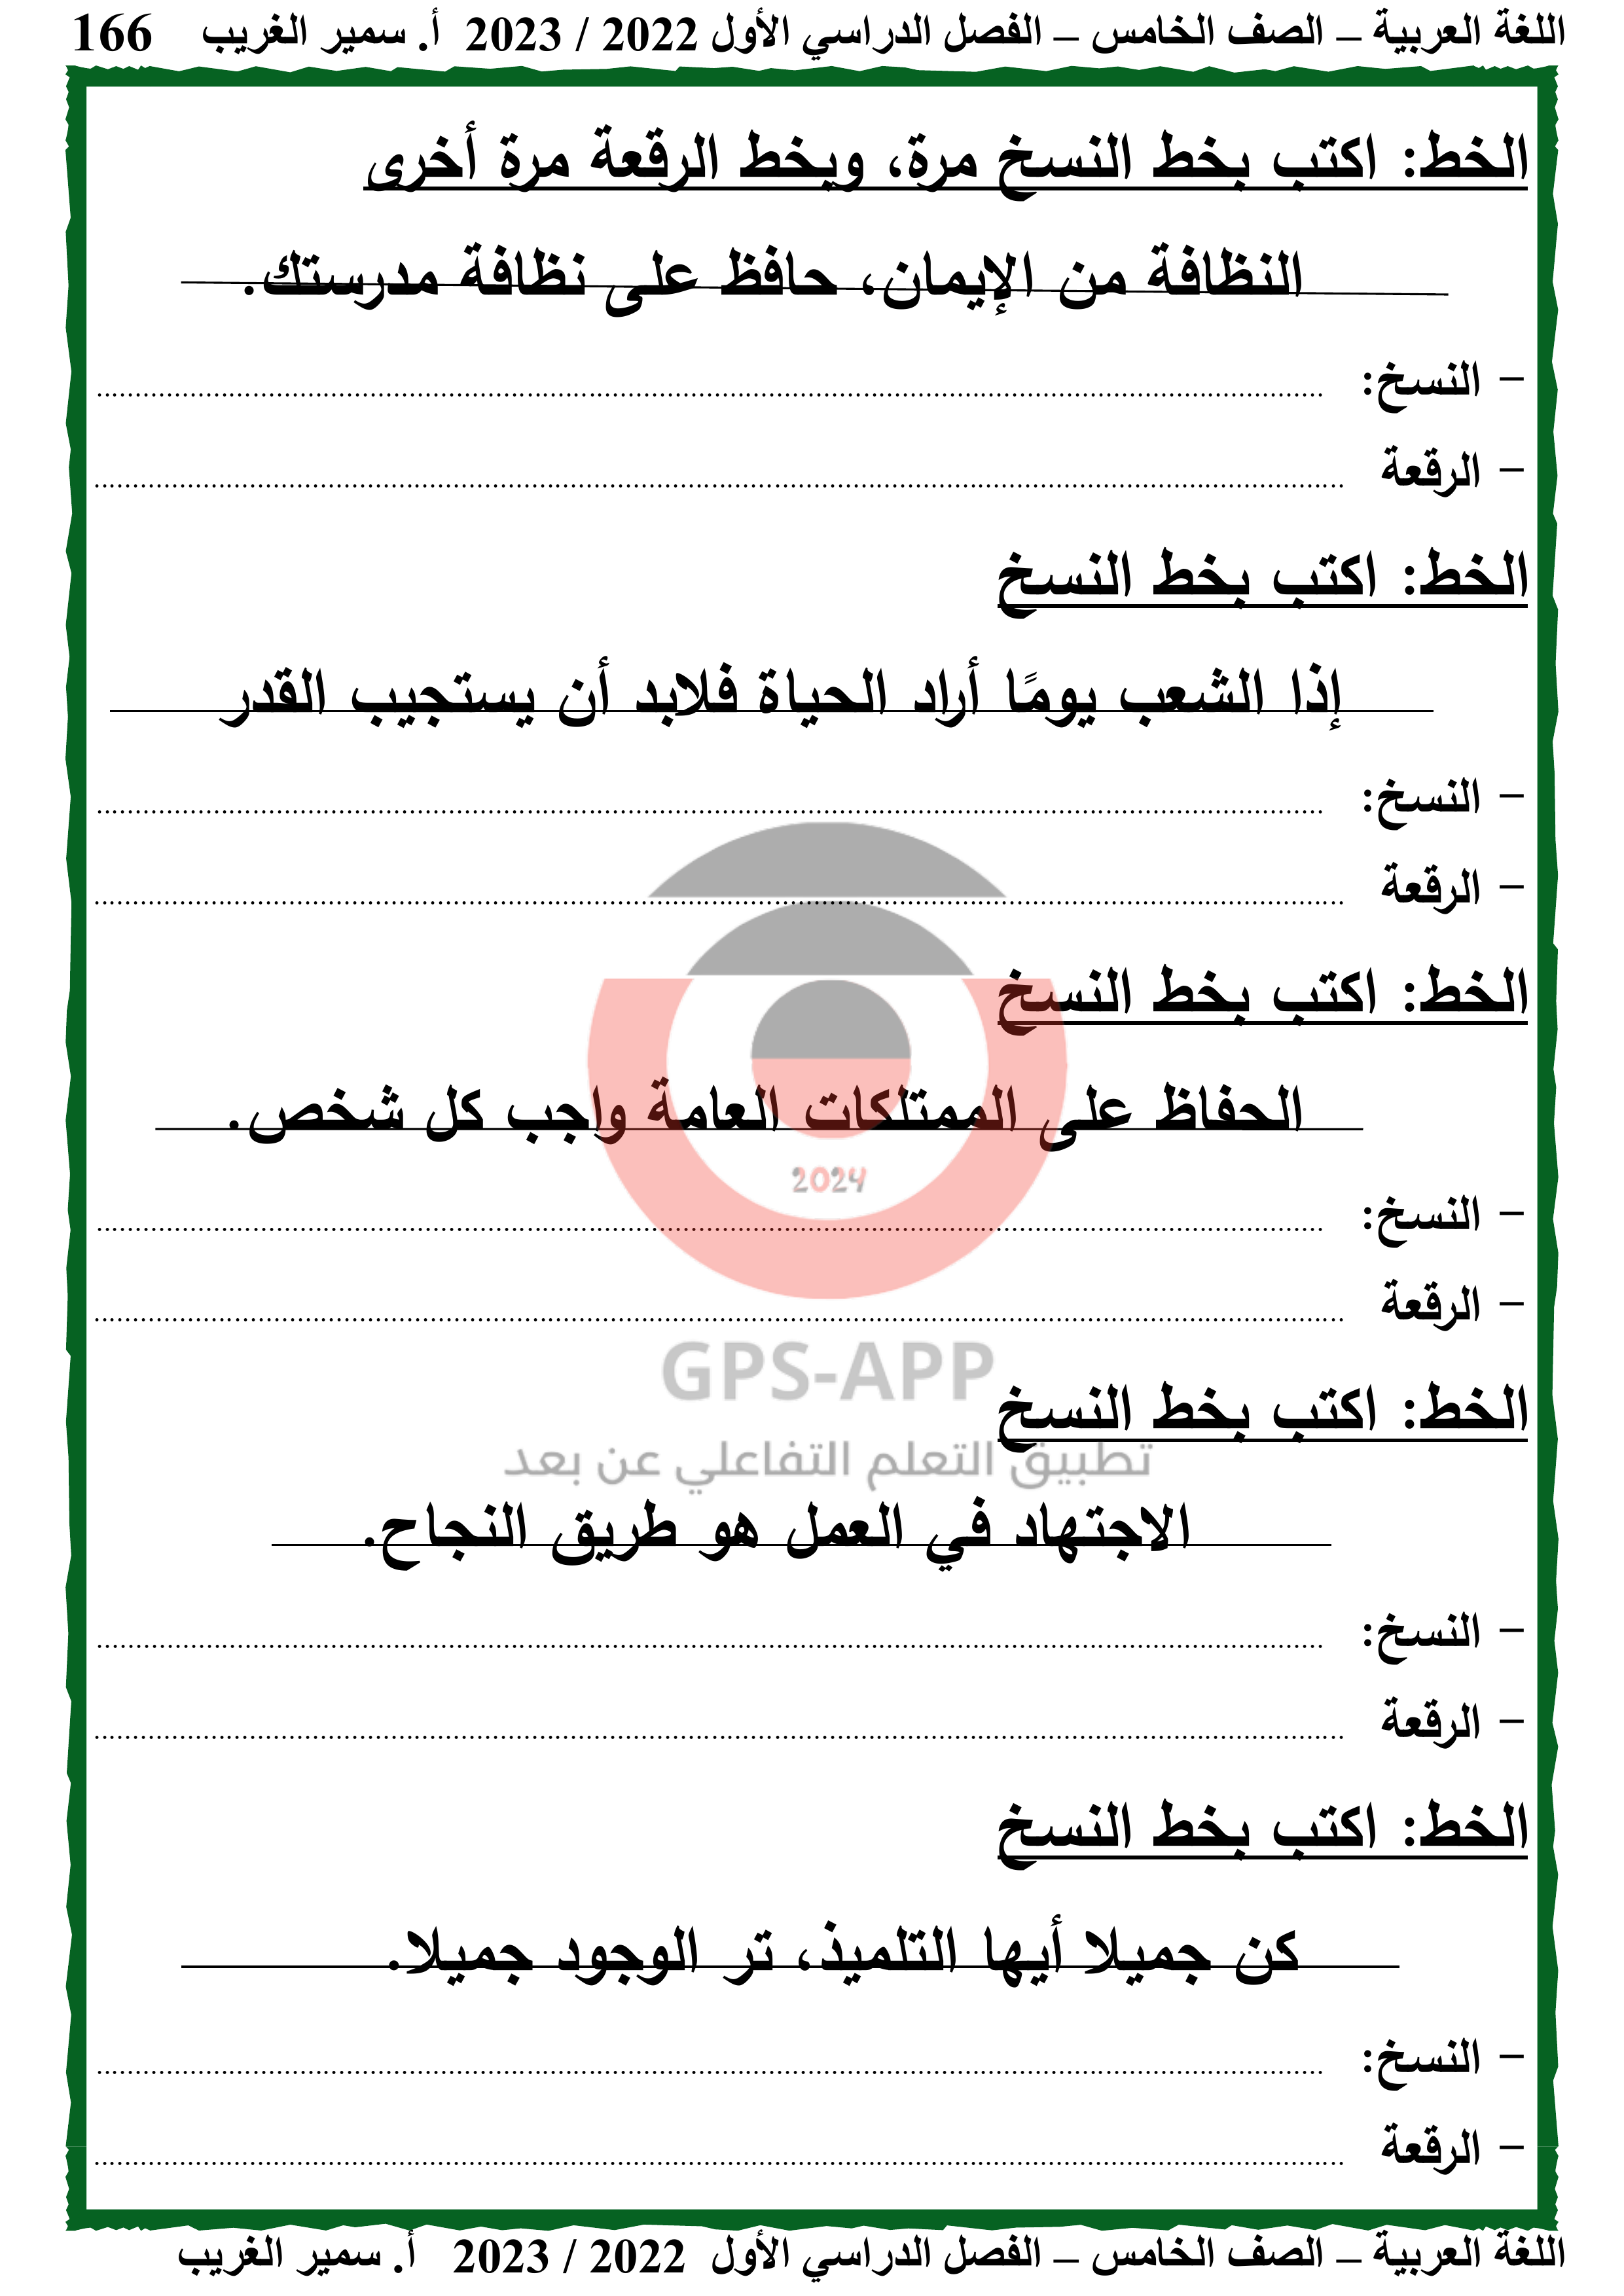 اللغة العربية – الصف الخامس – الفصل الدراسي الأول 2022 / 2023 أ. سمير الغريب 166
الخط: اكتب بخط النسخ مرة، وبخط الرقعة مرة أخرى
النظافة من الإيمان، حافظ على نظافة مدرستك.
– النسخ: ........................................
– الرقعة ........................................
الخط: اكتب بخط النسخ
إذا الشعب يومًا أراد الحياة فلابد أن يستجيب القدر
– النسخ: ........................................
– الرقعة ........................................
الخط: اكتب بخط النسخ
الحفاظ على الممتلكات العامة واجب كل شخص.
2024
– النسخ: ........................................
– الرقعة ........................................
GPS-APP
الخط: اكتب بخط النسخ
تطبيق التعلم التفاعلي عن بعد
الاجتهاد في العمل هو طريق النجاح.
– النسخ: ........................................
– الرقعة ........................................
الخط: اكتب بخط النسخ
كن جميلا أيها التلميذ، تر الوجود جميلا.
– النسخ: ........................................
– الرقعة ........................................
اللغة العربية – الصف الخامس – الفصل الدراسي الأول 2022 / 2023 أ. سمير الغريب